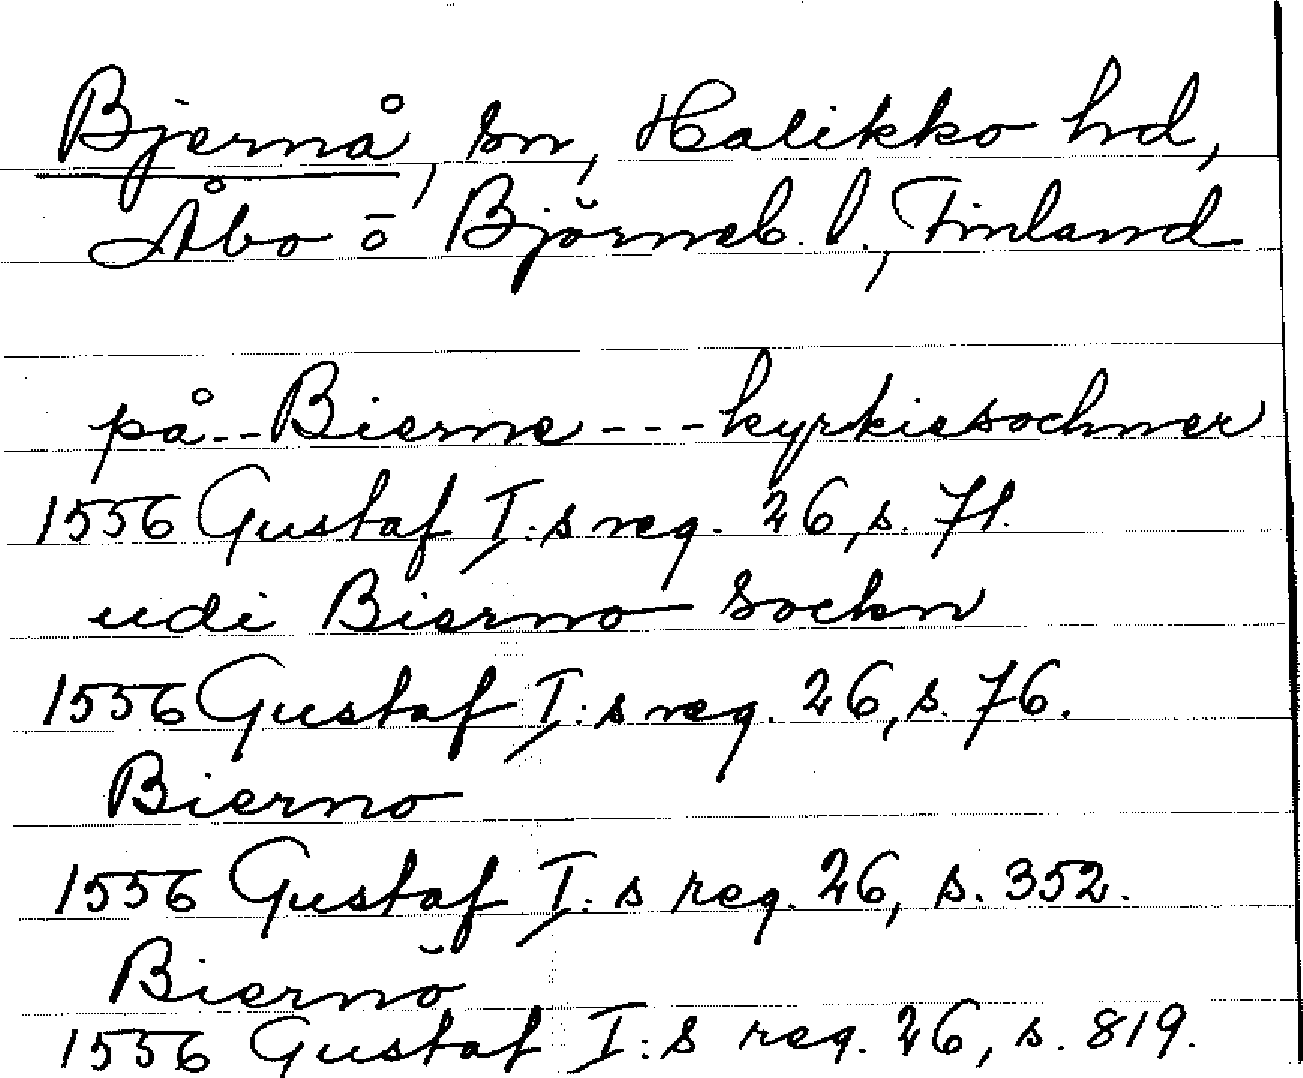 Bjernå, sn, Halikko hd,
Åbo o Björneb. l., Finland
på -- Bierne --- kyrkiesochner
1556 Gustaf I:s reg. 26, s. 71.
udi Bierno Sockn
1556 Gustaf I:s reg. 26, s. 76.
Bierno
1556 Gustaf I:s reg. 26, s. 352.
Biernö
1556 Gustaf I:s reg. 26, s. 819.